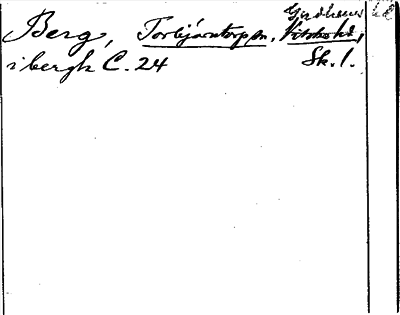 Gudhems
Berg, Torbjörntorp sn, Vilske hd,
i bergh C. 24 Sk. l.